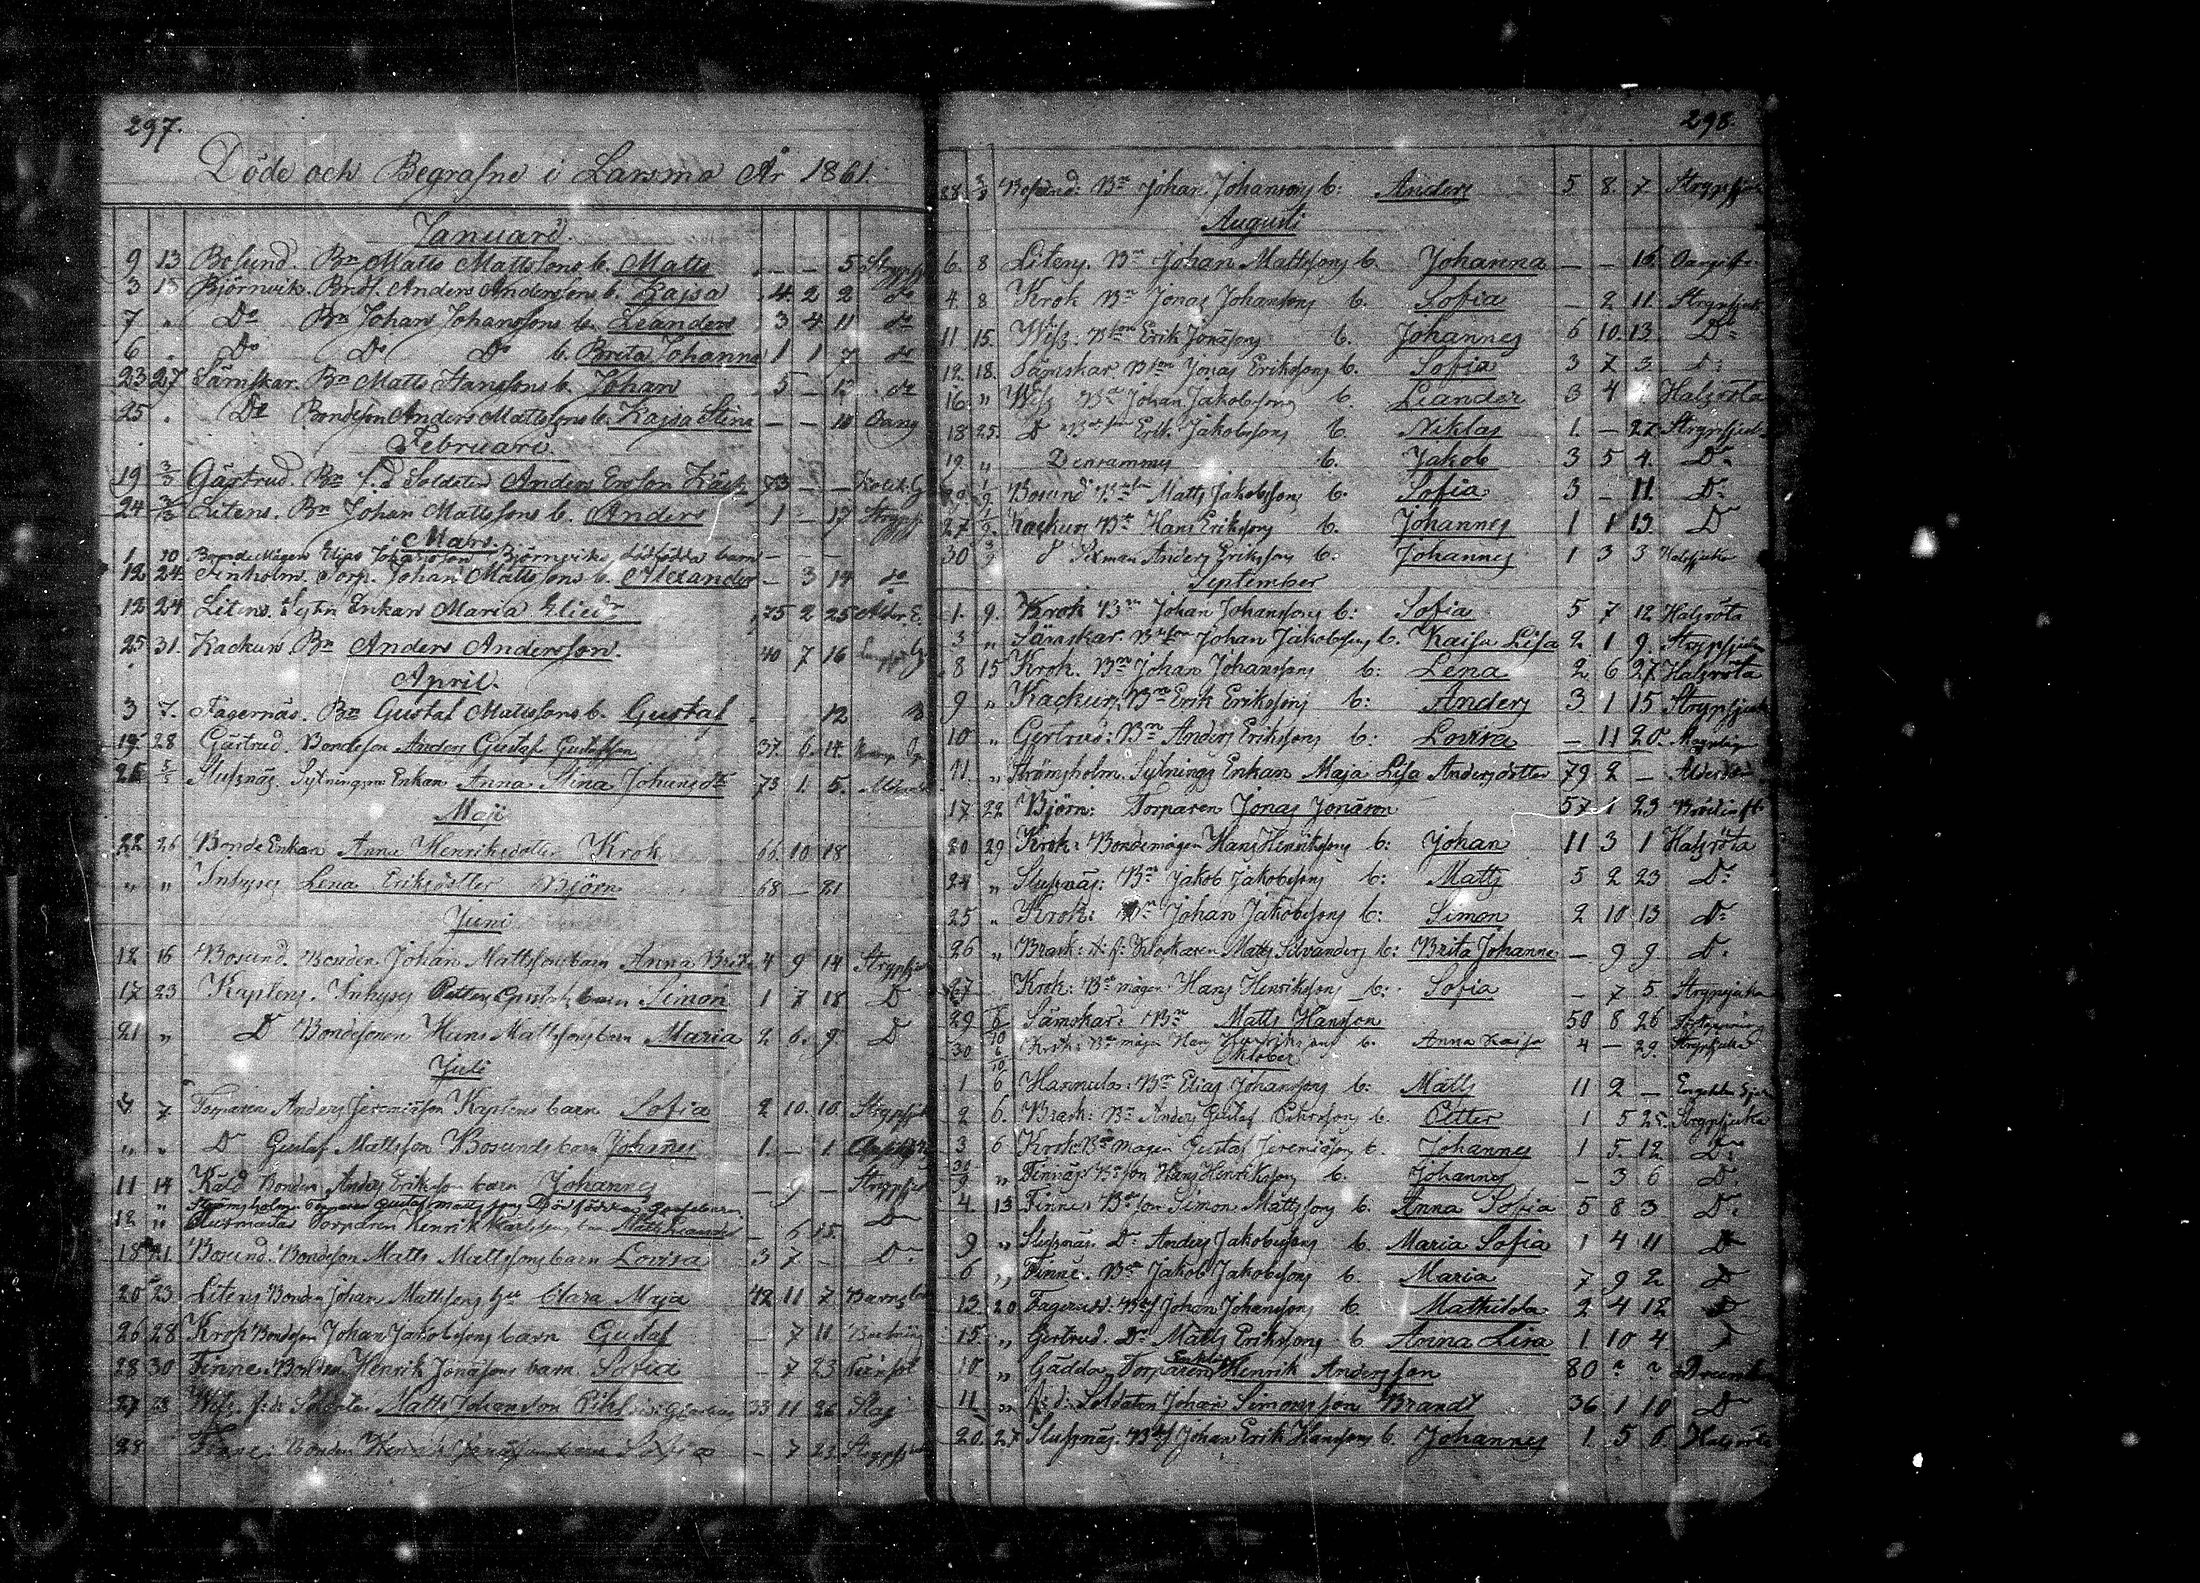 297.
Döde och Begrafne i Larsmo År 1861.
Januari.
9 13 Bosund. Bn Matts Mattssons b. Matts — — 5 Strypsj
3 13 Björnvik. Anders Anderssons b. Kajsa 4 2 2 do
7 " Do Bn Johan Johanssons b. Leander 3 4 11 do
6 " Do Do Do b. Brita Johanna 1 1 7 do
23 27 Sämskar. Bn Matts Hanssons b. Johan 5 — 12 do
25 " Do Bondeson Anders Mattssons b. Kajsa Stina — — 10
Februari.
19 3/3 Gärtrud. Bn f.d Soldaten Anders Ersson 73 — —
24 3/3 Litens. Bn Johan Mattssons b. Anders 1 — 17 Strypsj
Mars.
1 10 Bondemågen Elias Johansson Björnviks dödfödda barn — — —
12 24 Finholm. Torp. Johan Mattssons b. Alexander — 3 14 do
12 24 Litens. Sytn Enkan Maria Eliedr 75 2 25
25 31. Kackur Bn Anders Andersson. 40 7 16
April.
3 7. Fagernäs. Bn Gustaf Mattssons b. Gustaf 12
19 28 Gärtrud. Bondeson Anders Gustaf Gustafsson 37. 6. 14
25 5/5 Slussnäs. Sytningsm Enkan Anna Stina Johansdr 73 1. 5.
Maji
22 26 Bonde Enkan Anna Henriksdotter Krok 66. 10. 18
" " Inhyses Lena Eriksdotter Björn 68 — 21
Juni
12 16 Bosund. Bonden Johan Mattssons barn Anna Brita 4 9 14 Strypsju
17 23 Kaptens. Inhyses Petter Gustafs barn Simon 1 7 18 D
21 " D Bondesonen Hans Mattssons barn Maria 2 6. 9. D
Juli
4 7 Torparen Anders Jeremiasson Kaptens barn Sofia 2 10. 10. Strypsju
" " D Gustaf Mattsson Bosunds barn Johannes 1. — 1.
11 14 Kald Bonden Anders Eriksson barn Johannes — 9 — Strypsju
" Strömsholm Torparen Gustaf Mattssons Dödfödda Gossebarn.
12 " Torparen Henrik Karlssons barn Matts Leander — 6 15. D
18 21 Bosund. Bondeson Matts Mattssons barn Lovisa 3 7. — D
20 23 Litens Bonden Johan Mattssons hu Clara Maja 42 11 7 Barns
26 28 Krok Bondeson Johan Jakobssons barn Gustaf — 7 11
28 30 Finne. Bonden Henrik Jonassons barn Sofia — 7 23
27 28 Wiss. f:d: Soldaten Matts Johansson Pihl 33 11 26 Slag
28 Finne. Bonden Henrik Jonassons barn Sofia — 7 23. Strypsj
298
28. Bosund: Bn Johan Johanssons b: Anders 5 8. 7. Strypsju
Augusti
6. 8 Litens. Bn Johan Mattssons b. Johanna — — 16.
4. 8 Krok Bn Jonas Johanssons b. Sofia — 2 11. Strypsjuk
11 15. Wiss. Erik Jonassons b. Johannes 6 10. 13. Do
12. 18. Sämskar Jonas Erikssons b. Sofia 3 7 3. D:
16. " Wiss Bn Johan Jakobssons b. Leander 3 4 Halsröta
18 25. D Erik Jakobssons b. Niklas 1. — 27 Strypsjuk
19. " Densammes b. Jakob 3 5 4. D
29 1/9 Bosund Matts Jakobssons b. Sofia 3 — 11. D
27 1/9 Kackur Bn Hans Erikssons b. Johannes 1 1 13. D
30 Sexman Anders Erikssons b. Johannes 1 3 3 Halssjuka
September
1. 9. Krok Bn Johan Johanssons b: Sofia 5 7 12 Halsröta
3 " Sämskar. Johan Jakobssons b. Kaisa Lisa 2. 1 9. Strypsjuka
8 15 Krok. Bn Johan Johanssons b: Lena 2 6 27 Halsröta
9 " Kackur, Bn Erik Erikssons b: Anders 3 1 15 Strypsjuk
10 " Gertrud: Bn Anders Erikssons b: Lovisa — 11 20.
11. " Strömsholm. Sytnings Enkan Maja Lisa Andersdotter 79 2 —
17 22 Björn: Torparen Jonas Jonasson 57 1 23
20 29 Krok: Bondemågen Hans Henrikssons b: Johan 11 3 1 Halsröta
24 " Slussnäs: Bn Jakob Jakobssons b: Matts 5 2 23 D:
25 " Krok: Bn Johan Jakobssons b: Simon 2 10 13 D:
26 " Brask: Klockaren Matts Silvanders b: Brita Johanna — 9 9 D:
27 Krok: Bn mågen Hans Henrikssons b: Sofia — 7 5. Strypsjuka
29 6/10 Sämskar: Bn Matts Hansson 50 8 26
30 6/10 Krok: Bn mågen Hans Henrikssons b. Anna Kaisa 4 — 29. Strypsjuka
Oktober
1 6 Hannula: Bn Elias Johanssons b: Matts 11 2 —
2 6. Brask: Bn Anders Gustaf b. Petter 1 5 25. Strypsjuka
3 6 Krok Bn mågen Gustaf Jeremiassons b. Johannes 1 5. 12. D:
30/9 " Finnäs Bn son Hans Henrikssons b. Johannes — 3 6 D.
4. 13 Finne: Bn son Simon Mattssons b. Anna Sofia 5 8 3 D:
9 " Slussnäs. D: Anders Jakobssons b. Maria Sofia 1 4 11 D
6 " Finne. Bn Jakob Jakobssons b. Maria 7 9 2 D
13. 20 Johan Johanssons b. Mathilda 2 4 12 D
15. " Gertrud. D: Matts Erikssons b. Anna Lisa 1 10 4 D
10 " Gädda. Torparen Enkling Henrik Andersson 80 ? ?
11 " f:d: Soldaten Johan Simonsson Brandt 36 1 10 D
20. 27 Slussnäs. Johan Erik Hanssons b. Johannes 1. 5 6. Halsröta